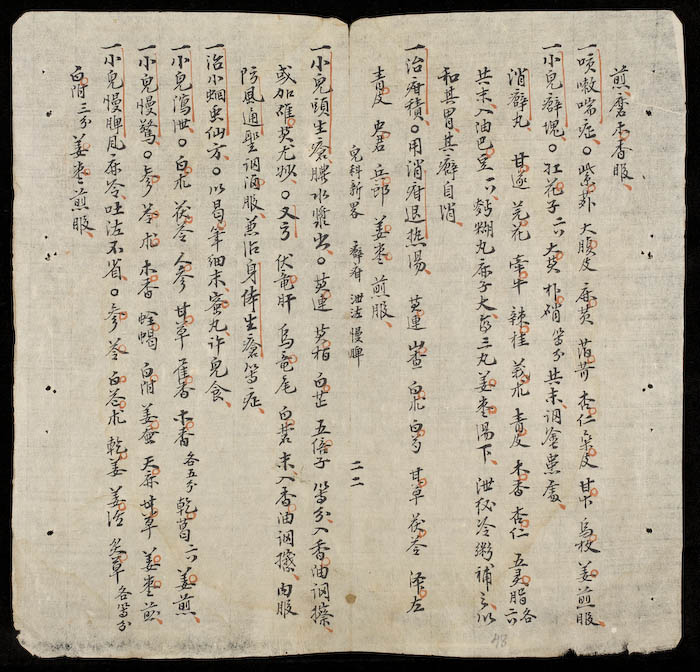 煎磨木香服
一咳嗽喘症。紫苏 大腹皮 麻黄 苗苛 杏仁 桑皮 甘中 烏枚 姜煎服
一小兒癖塊。红花子 六 大英 朴硝 等分 共末 调 患處
消癖丸 甘遂 芫花 牽牛 辣桂 莪朮 青皮 木香 杏仁 五灵脂 各六
共末入油巴豆 六 麪糊丸麻子大 每三丸姜枣湯下 泄 冷粥補之以
和其胃其癖自消
一治疳積。用消疳退热湯 英連 山查 白朮 白芍 甘草 茯苓 泽左
青皮 史君 兵郎 姜枣煎服
兒科新畧 癖疳 泄泻 慢脾 二二
一小兒頭生瘡膿水漿出。英連 英柏 白芷 五倍子 等分入香油调擦
或加雄英尤妙。又方 伏竜肝 烏竜尾 白茗 末入香油调擦 内服
防風通聖调酒服兼治身体生瘡等症
一治小蛔虫仙方。以 細末蜜丸许兒食
一小兒瀉泄。白朮 茯苓 人參 甘草 藿香 木香 各五分 乾葛 六 姜煎
一小兒慢驚。參 苓 朮 木香 全蝎 白附 姜蚕 天麻 甘草 姜枣煎
一小兒慢脾風 麻冷吐泻不省。參 苓 白芷 朮 乾姜 姜活 炙草 各等分
白附 三分 姜枣煎服
48